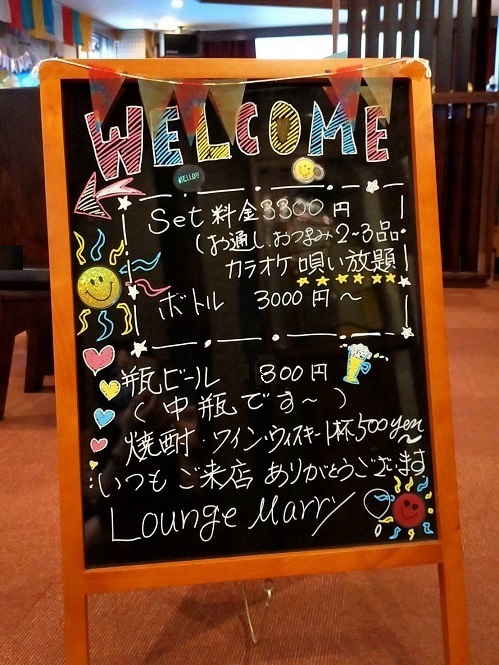 WELCOME
HELLO!!
Set 料金 3300 円
(お通し、おつまみ 2~3品・
カラオケ 唄い放題
ボトル 3000 円 ~
瓶ビール 800 円
( 中瓶です~ )
焼酎・ワイン・ウィスキー1杯500yen~
いつも ご来店 ありがとうございます
Lounge Marry